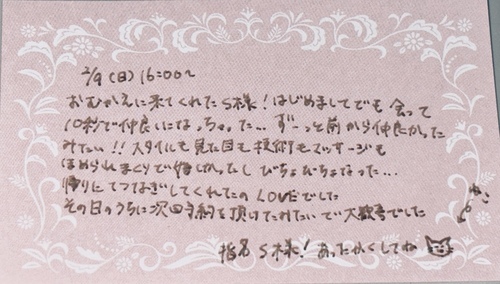 2/9(日)16:00〜
おむかえに来てくれたS様!はじめましてでも 会って
10秒で仲良しになっちゃった... ずーっと前から仲良かった
みたい!!スタイルも見た目も技術もマッサージも
ほめられまくりで嬉しかったし びちょびちょなった...
帰りにてつなぎしてくれたの LOVEでした
その日のうちに次回予約を頂けてたみたいで大歓喜でした
指名 S様!あったかくしてね